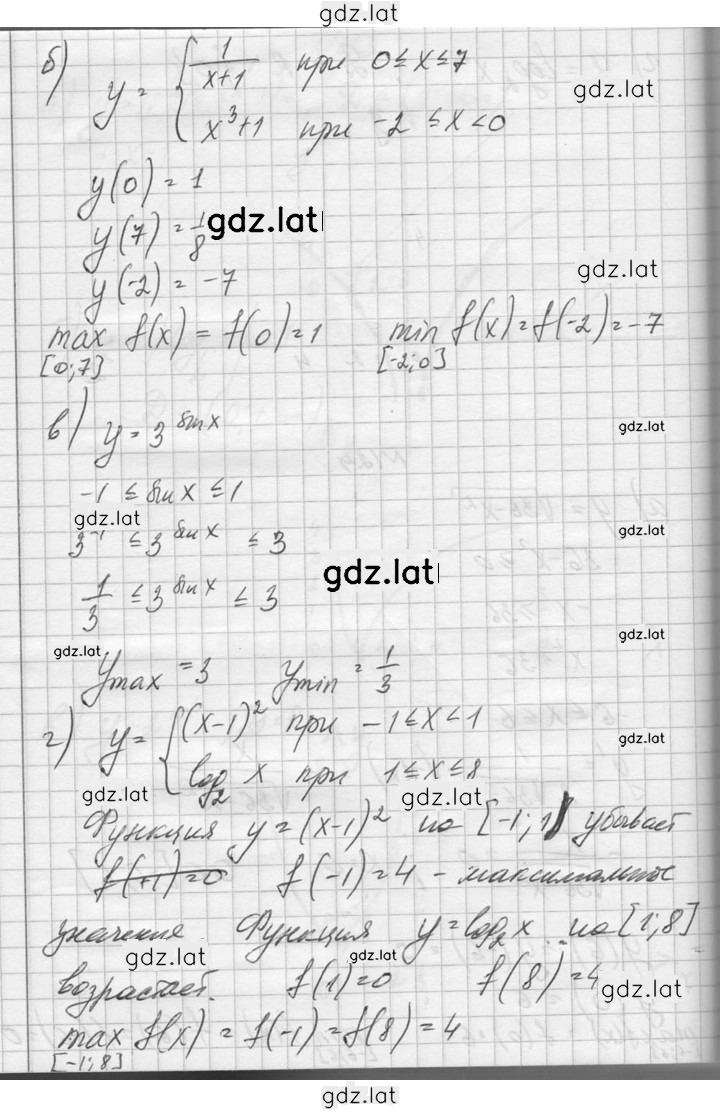 gdz.lat
б) y = { 1/(x+1) при 0 ≤ x ≤ 7
gdz.lat
x³+1 при -2 ≤ x < 0
y(0) = 1
y(7) = 1/8
gdz.lat
y(-2) = -7
gdz.lat
max f(x) = f(0) = 1 min f(x) = f(-2) = -7
[0;7] [-2;0]
в) y = 3^sin x
gdz.lat
-1 ≤ sin x ≤ 1
gdz.lat
3^-1 ≤ 3^sin x ≤ 3
gdz.lat
gdz.lat
1/3 ≤ 3^sin x ≤ 3
gdz.lat
gdz.lat
y max = 3 y min = 1/3
г) y = { (x-1)² при -1 ≤ x < 1
gdz.lat
log₂ x при 1 ≤ x ≤ 8
gdz.lat gdz.lat
Функция y = (x-1)² на [-1;1) убывает
f(+1)=0 f(-1)=4 - максимальное
значение. Функция y=log₂x на [1;8]
gdz.lat gdz.lat
возрастает. f(1)=0 f(8)=4
gdz.lat
max f(x) = f(-1) = f(8) = 4
[-1;8]
gdz.lat